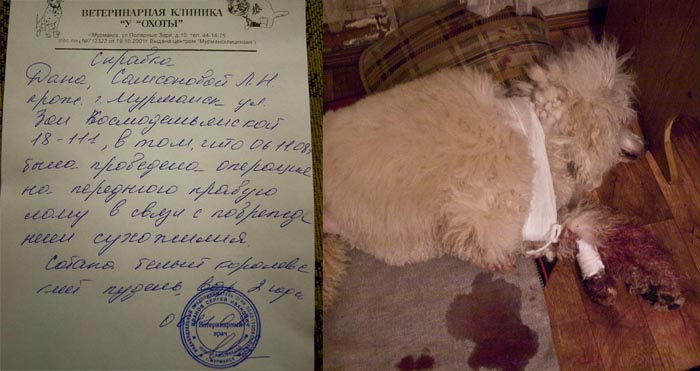 ВЕТЕРИНАРНАЯ КЛИНИКА
"У "ОХОТЫ"
г.Мурманск, ул.Полярные Зори, д.19, тел. 44-14-75
от 19.10.2001г. Выдана центром "Мурманлицензия")
Справка
Дана, Самсоновой Л.Н
прож. г. Мурманск ул.
Зои Космодемьянской
18-111, в том, что 06.11.08г
была проведена операция
на переднюю правую
лапу в связи с поврежде
нием сухожилия
Собака белый королевс
кий пудель, 2 года
Ветеринарный
врач